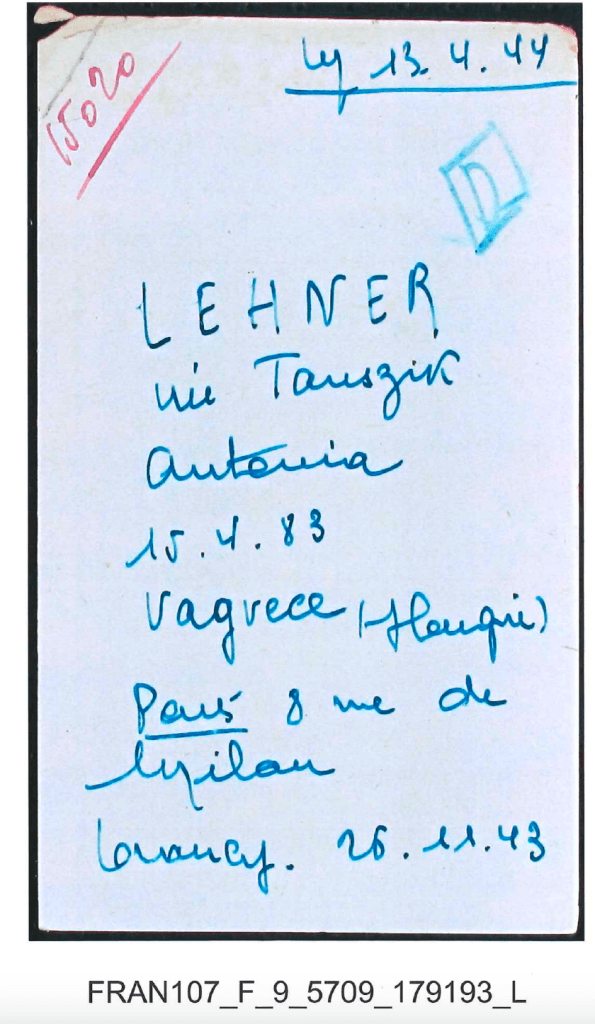 15020
13.4.44
D
LEHNER
née Tauszik
Antonia
15.4.83
Vagvece (Hongrie)
Paris 8 rue de
Milan
Drancy. 26.11.43
FRAN107_F_9_5709_179193_L